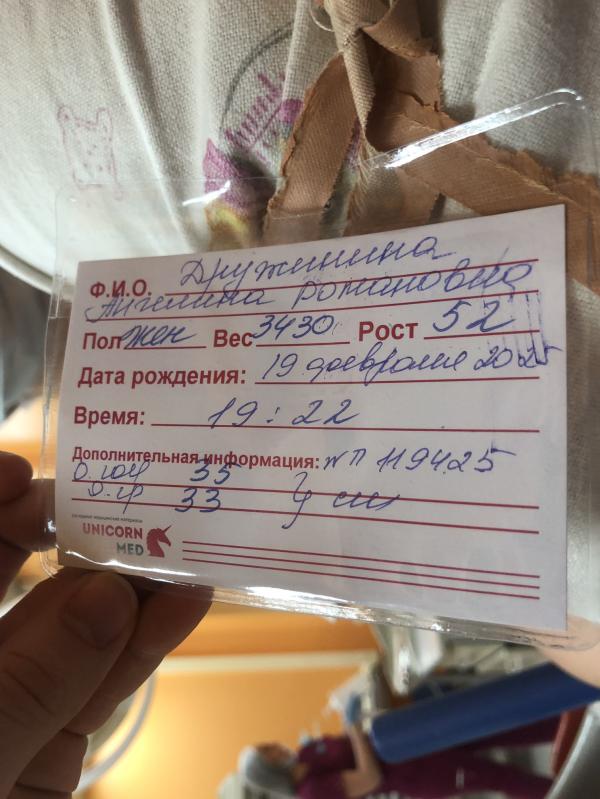 Ф.И.О. Дружинина
Ангелина Романовна
Пол жен Вес 3430 Рост 52
Дата рождения: 19 февраля 2025
Время: 19:22
Дополнительная информация: №П 119425
О. гол 35
О. гр 33
расходные медицинские материалы
UNICORN
MED